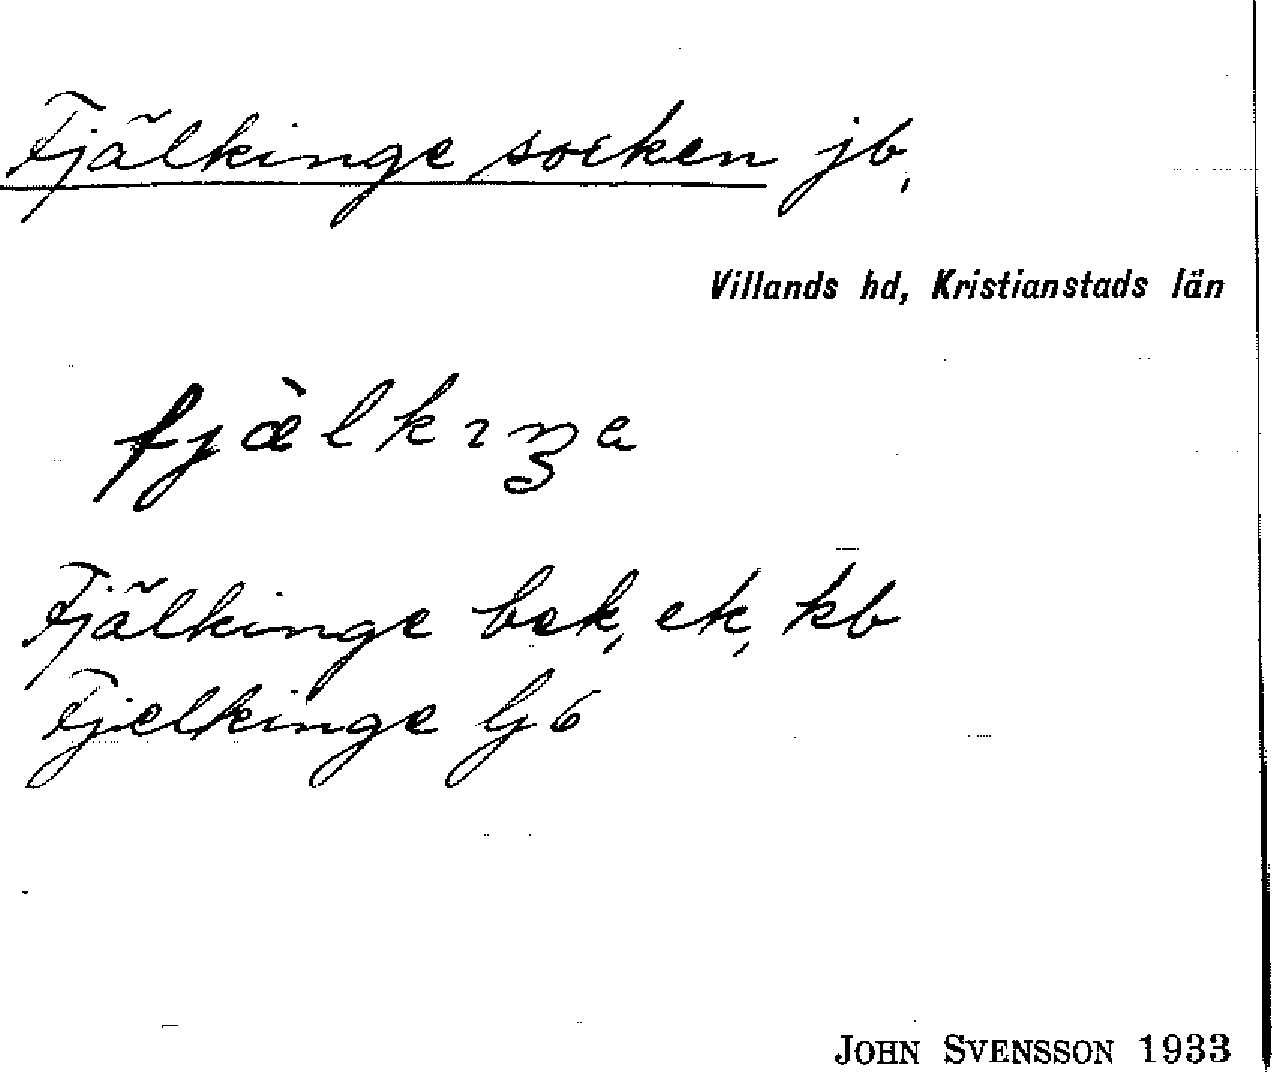 Fjälkinge socken jb,
Villands hd, Kristianstads län
fjæ̀lkıŋa
Fjälkinge bek, ek, kb
Fjelkinge Gb
JOHN SVENSSON 1933